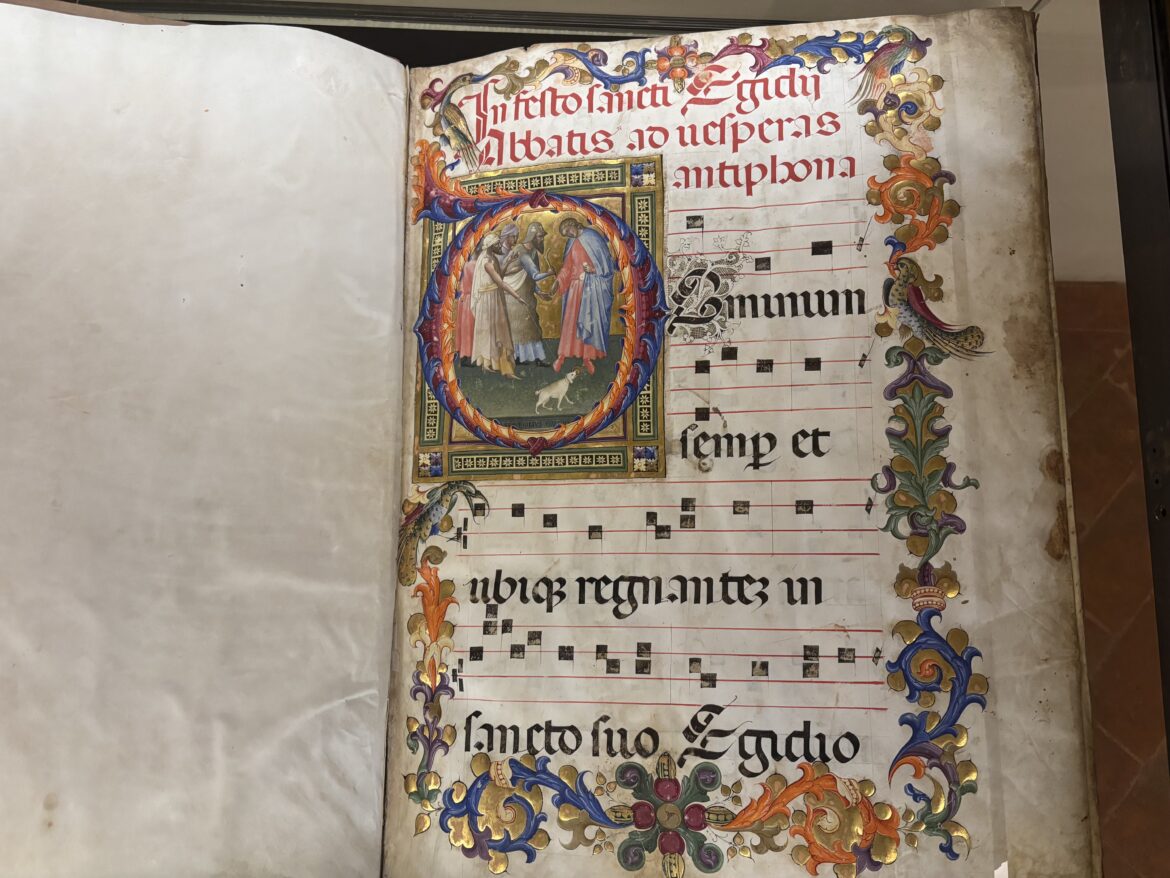 In festo sancti Egidij
Abbatis ad uesperas
antiphona
DOminum
semp et
ubiqꝫ regnanteꝫ in
sancto suo Egidio